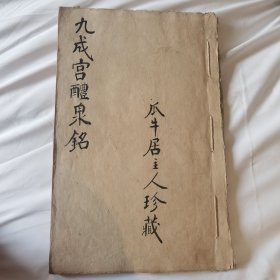 九成宫醴泉銘
瓜牛居主人珍藏